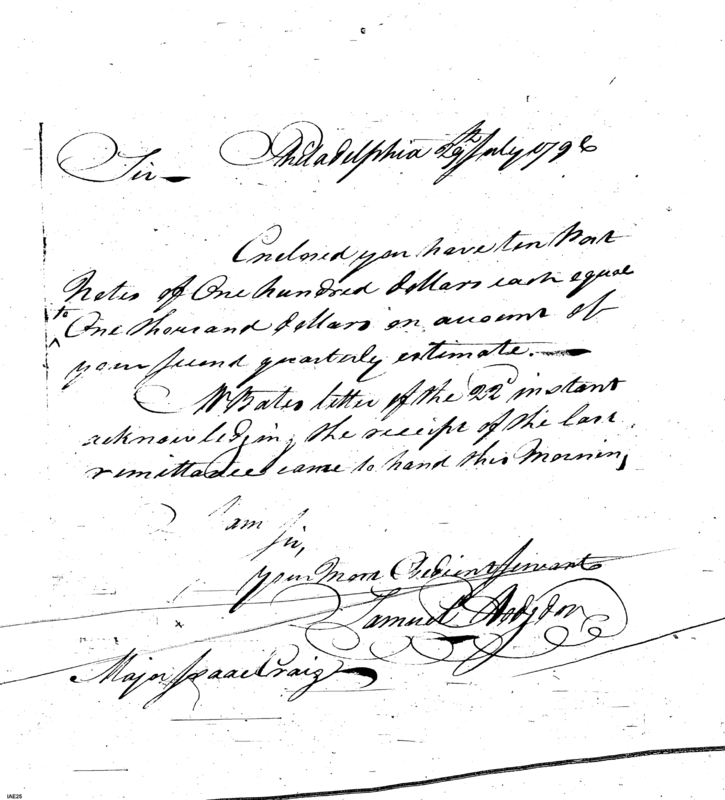 Sir Philadelphia 29th July 1796
Enclosed you have ten Post
Notes of One hundred dollars each equal
to One thousand dollars on account of
your second quarterly estimate.
Mr Bates letter of the 22d instant
acknowledging the receipt of the last
remittance came to hand this Morning
I am
Sir,
your Most Obedient Servant
Samuel Hodgdon
Major Isaac Craig
IAE25